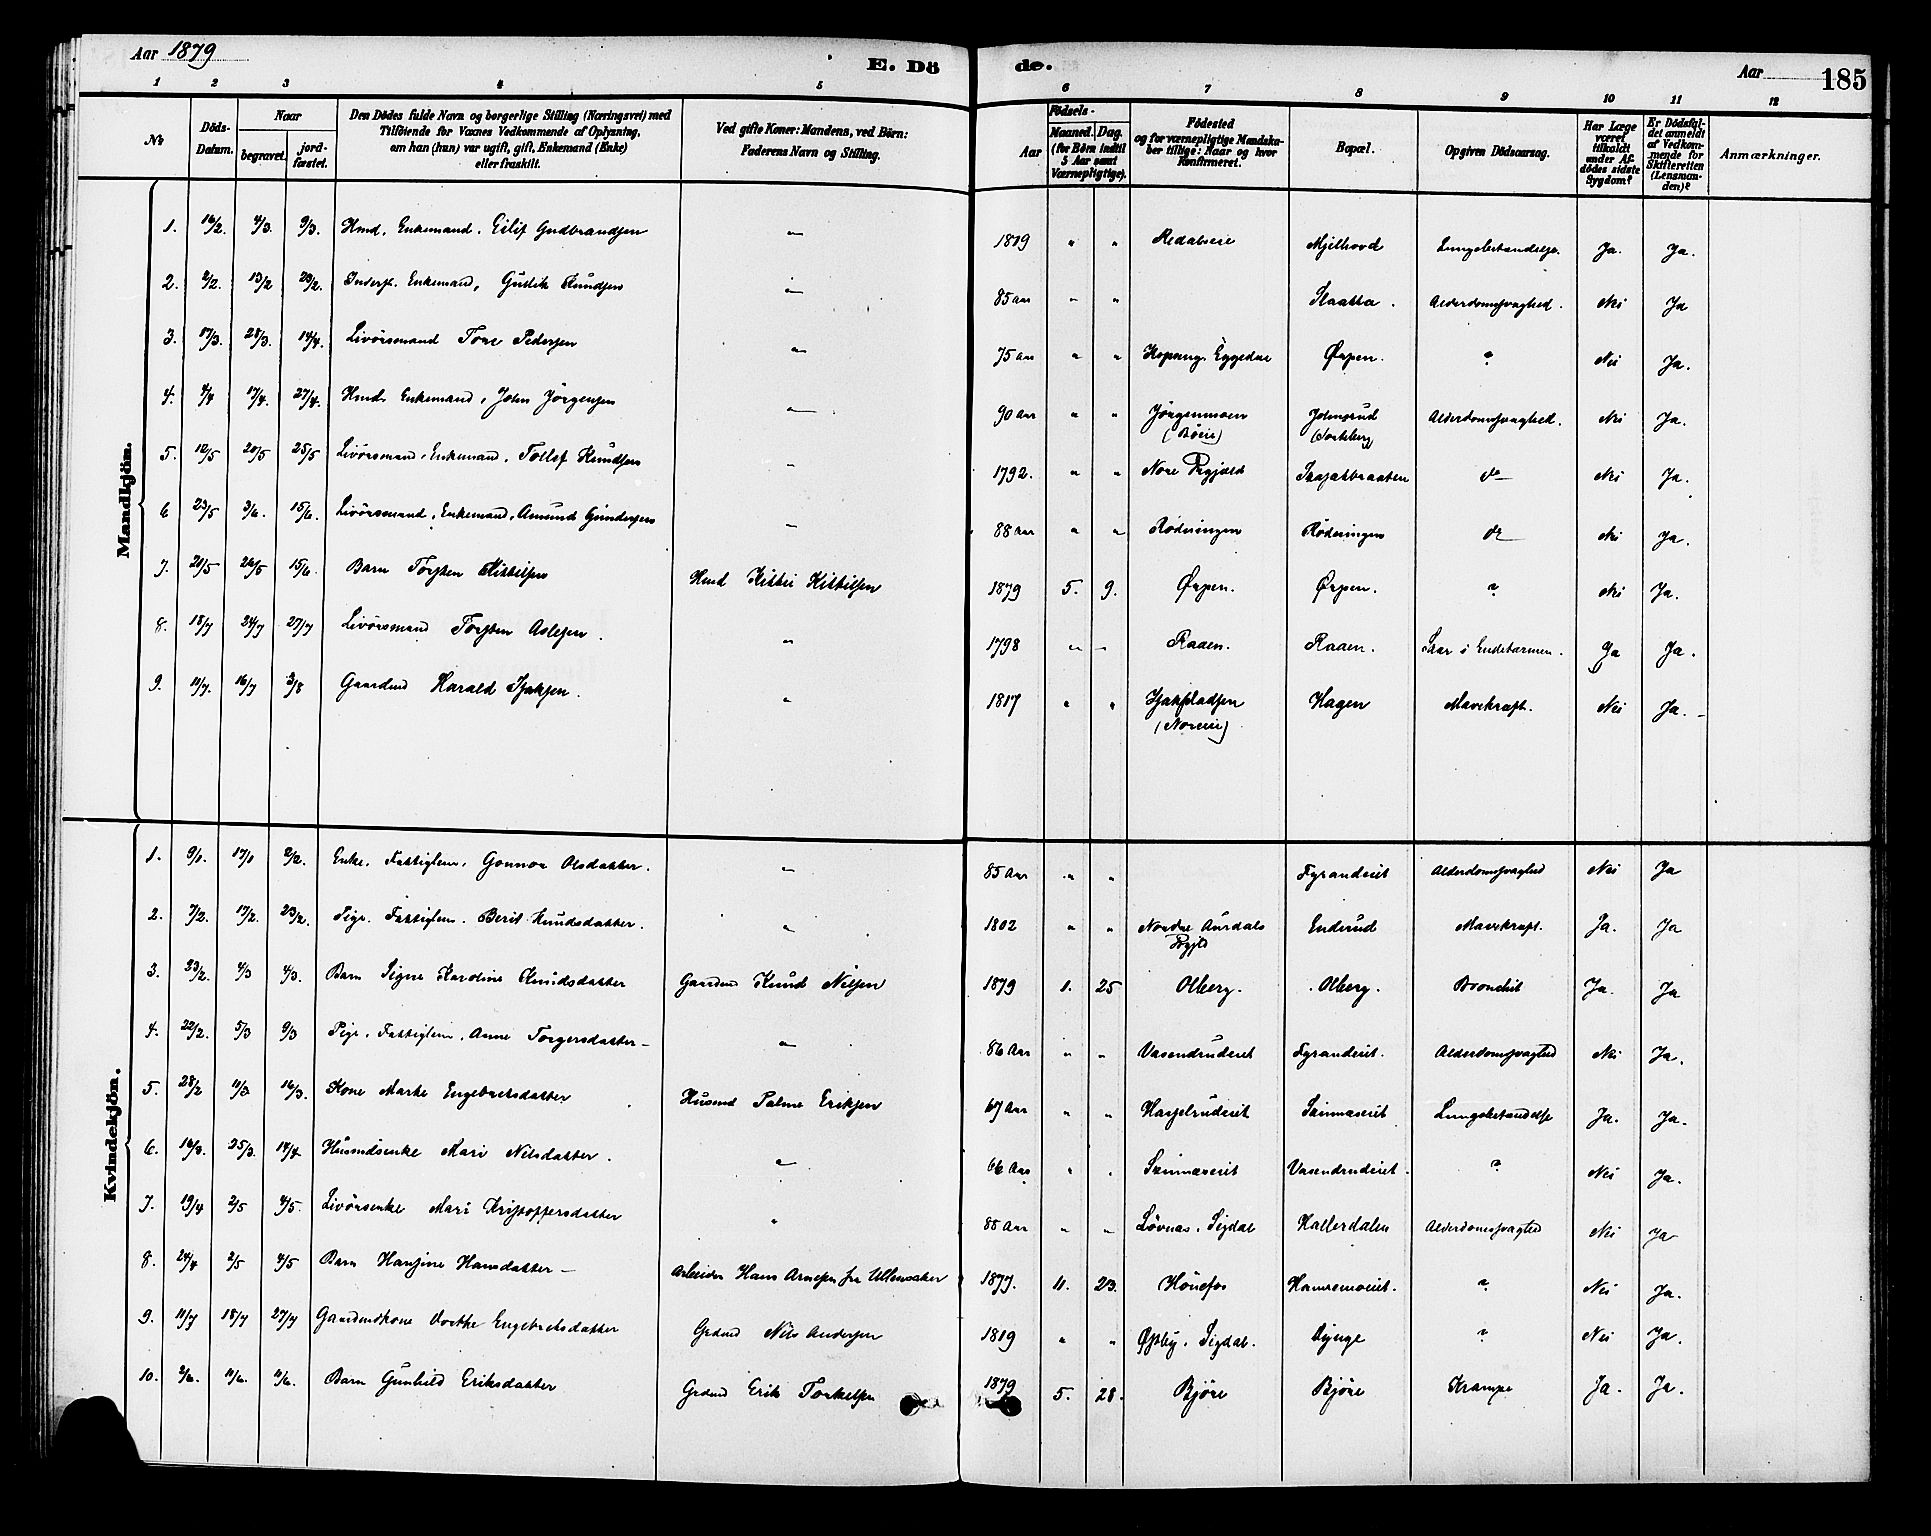 Aar 1879
E. Döde.
Aar 185
1 2 3 4 5 6 7 8 9 10 11 12
No
Döds-Datum.
Naar
begravet.
jordfæstet.
Den Dödes fulde Navn og borgerlige Stilling (Næringsvei) med
Tilföiende for Voxnes Vedkommende af Oplysning,
om han (hun) var ugift, gift, Enkemand (Enke)
eller fraskilt.
Ved gifte Koner: Mandens, ved Börn:
Faderens Navn og Stilling.
Födsels-
Aar
Maaned. Dag.
(for Börn indtil
5 Aar samt
Værnepligtige).
Födested
og for værnepligtige Mandska-
ber tillige: Naar og hvor
Konfirmeret.
Bopæl.
Opgiven Dödsaarsag.
Har Læge
været
tilkaldt
under Af-
dödes sidste
Sygdom?
Er Dödsfal-
det anmeldt
af Vedkom-
mende for
Skifteretten
(Lensman-
den)?
Anmærkninger.
Mandkjön.
1. 16/2. 4/3. 9/3. Hmd. Enkemand. Eilif Gudbrandsen " 1819 " " Redalseie Mjelhovd Lungebetændelse. Ja. Ja.
2. 2/2. 13/2 23/2. Inderst. Enkemand, Gullik Knudsen " 85 Aar " " Slaatta. Alderdomssvaghed. Nei Ja
3. 17/3. 28/3. 14/4. Livörsmand Tore Pedersen " 75 Aar " " Eggedal Ørpen. ? Nei Ja.
4. 4/4 17/4. 27/4. Hmd. Enkemand, John Jörgensen " 90 Aar " " Jörgenmoen
(Böeie) Johnsrud Alderdomssvaghed. Nei Ja.
5. 12/5 20/5 25/5 Livörsmand, Enkemand, Tollef Knudsen " 1792. " " Nore Prgjeld do Nei Ja.
6 23/5 3/6. 15/6. Livörsmand, Enkemand, Amund Gundersen " 88 Aar " " Röderingen Röderingen do Nei Ja.
7. 20/5 26/5 15/6. Barn Torsten Kittilsen Hmd Kittil Kittilsen 1879 5. 9. Ørpen. Ørpen. ? Nei Ja.
8. 18/7 24/7 27/7 Livörsmand Torsten Aslesen. " 1798 " " Raaen. Raaen. Saar i Endetarmen. Ja Ja.
9. 11/7. 16/7 3/8 Gaardmd Harald Isaksen. " 1817 " " Isakpladsen
(Noreeie) Hagen Mavekræft. Nei Ja.
Kvindekjön.
1. 9/1. 17/1 2/2. Enke. Fattiglem. Gonnor Olsdatter. " 85 Aar " " Fyrandeiet Alderdomssvaghed Nei Ja
2. 7/2. 17/2. 23/2. Pige. Fattiglem. Berit Knudsdatter. " 1802 " " Nordre Aurdals
Prgjld Enderud Mavekræft. Ja. Ja
3. 23/2. 4/3 4/3. Barn Signe Karoline Knudsdatter Gaardmd Knud Nilsen 1879 1. 25 Olberg. Olberg. Bronchit Ja. Ja
4. 22/2. 5/3 9/3 Pige. Fattiglem. Anne Torgersdatter " 86 Aar " " Vasendrudeiet Fyrandeiet. Alderdomssvaghed Nei Ja.
5. 28/2 11/3 16/3. Kone Marte Engebretsdatter Husmd Palme Eriksen 67 Aar " " Hasselrudeiet Skinnaseiet Lungebetændelse Ja. Ja.
6. 16/3. 25/3. 14/4 Husmdsenke Mari Nilsdatter. " 66 Aar " " Skinnaseiet Vasendrudeiet. ? Nei Ja.
7. 19/4 2/5 4/5. Livörsenke Mari Kristoffersdatter " 88 Aar " " Lövnas. Sigdal Hallerdalen Alderdomssvaghed Nei Ja
8. 24/4 2/5 4/5 Barn Hansine Hansdatter Arbeider Hans Arnesen fra Ullensaker 1877. 11. 23. Hönefos Hamremoeiet. ? Nei Ja.
9. 11/7 18/7 27/7 Gaardmdkone Dorthe Engebretsdatter Grdmd Nils Andersen 1819 " " Øfsby. Sigdal. Bynge ? Nei Ja.
10. 2/6. 11/6. 11/6. Barn Gunhild Eriksdatter Grdmd Erik Torkelsen 1879 5. 28. Björe Björe Krampe Ja. Ja.